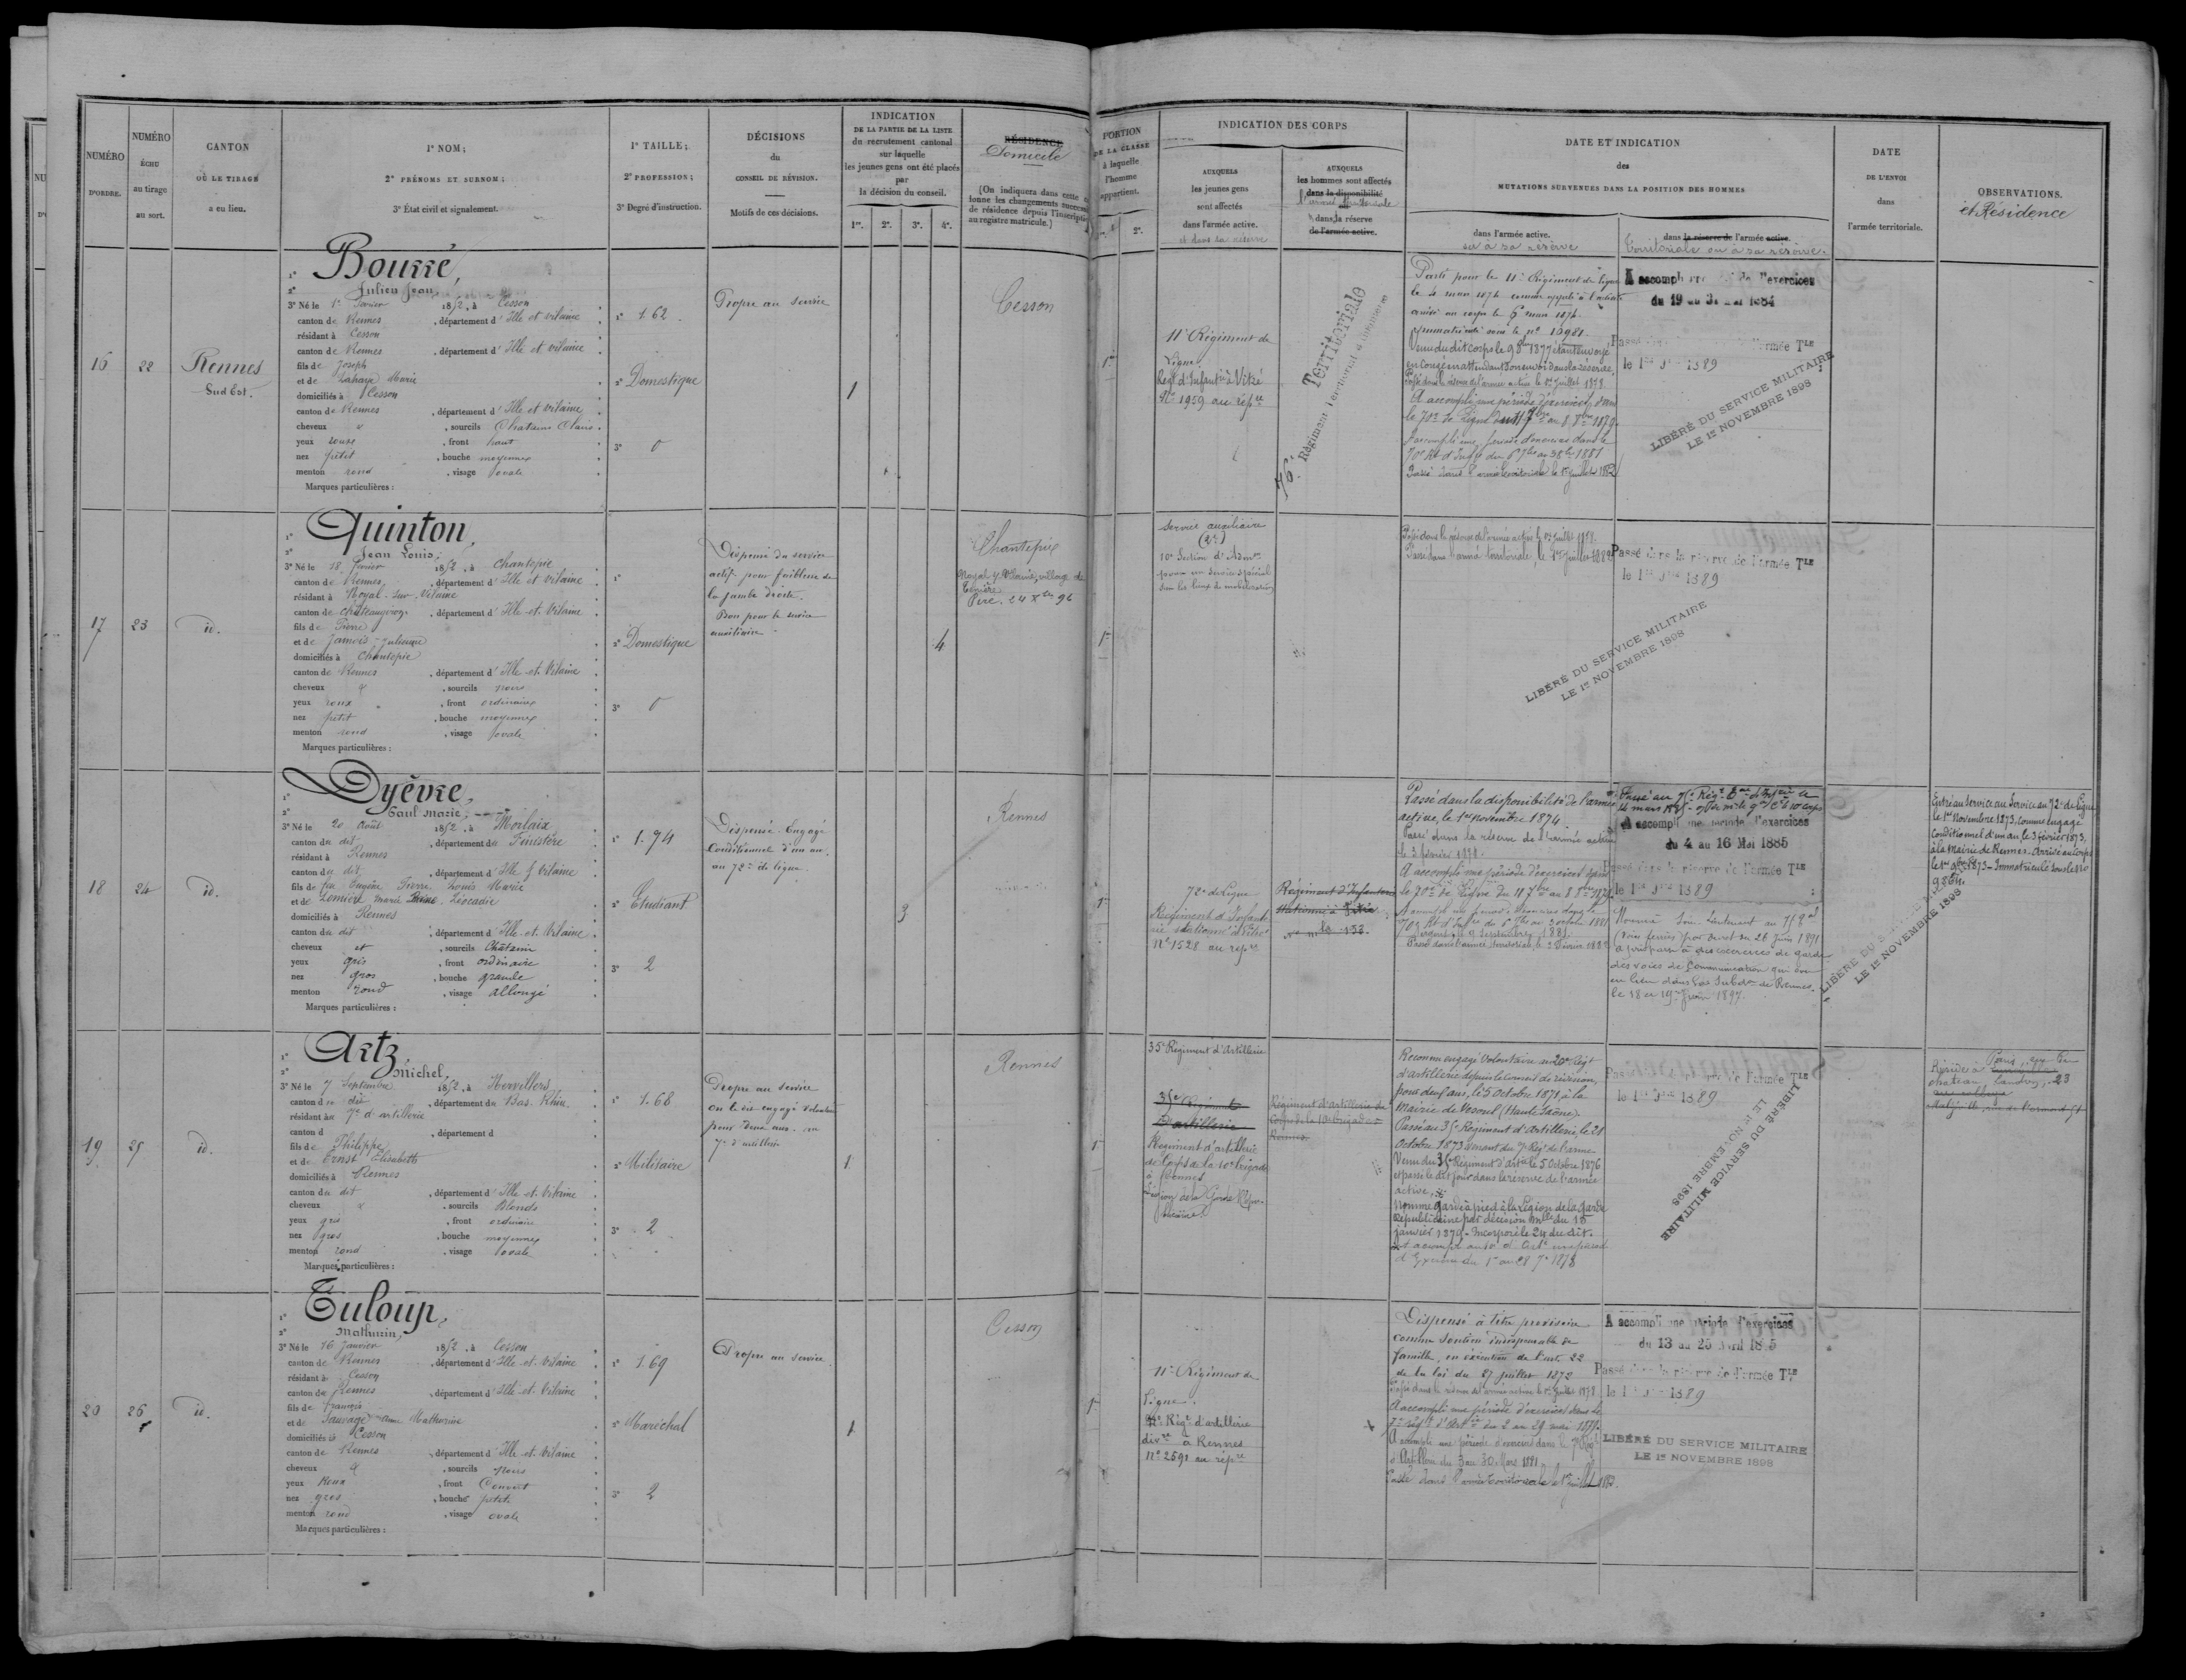 NUMÉRO
D'ORDRE.
NUMÉRO
ÉCHU
au tirage
au sort.
CANTON
OÙ LE TIRAGE
a eu lieu.
1° NOM;
2° PRÉNOMS ET SURNOM;
3° État civil et signalement.
1° TAILLE;
2° PROFESSION;
3° Degré d'instruction.
DÉCISIONS
du
CONSEIL DE RÉVISION.
Motifs de ces décisions.
INDICATION
DE LA PARTIE DE LA LISTE
du recrutement cantonal
sur laquelle
les jeunes gens ont été placés
par
la décision du conseil.
1re. 2e. 3e. 4e.
RÉSIDENCE
Domicile
(On indiquera dans cette
les changements
de résidence depuis l'inscription
au registre matricule.)
PORTION
DE LA CLASSE
à laquelle
l'homme
appartient.
2e.
INDICATION DES CORPS
AUXQUELS
les jeunes gens
sont affectés
dans l'armée active.
et dans sa réserve
AUXQUELS
les hommes sont affectés
dans la disponibilité
dans la réserve
de l'armée active.
DATE ET INDICATION
des
MUTATIONS SURVENUES DANS LA POSITION DES HOMMES
dans l'armée active.
ou à sa réserve
dans la réserve de l'armée active.
Territoriale ou à sa réserve.
DATE
DE L'ENVOI
dans
l'armée territoriale.
OBSERVATIONS.
et Résidence
16
22
Rennes
Sud Est.
1° Bourré,
2° Julien Jean
3° Né le 1er Février 1852, à Cesson
canton de Rennes, département d'Ille et Vilaine
résidant à Cesson
canton de Rennes, département d'Ille et Vilaine
fils de Joseph
et de Lahaye Marie
domiciliés à Cesson
canton de Rennes, département d'Ille et Vilaine
cheveux et, sourcils Châtains Clairs
yeux roux, front haut
nez petit, bouche moyenne
menton rond, visage ovale
Marques particulières :
1° 1.62
2° Domestique
3° 0
Propre au service
1
Cesson
1re
11e Régiment de
Ligne
Régt d'Infantie à Vitré
N° 1959 au répre
76e Régiment Territorial d'infanterie
Territoriale
Parti pour le 11e Régiment de ligne
le 4 mars 1874 comme appelé à l'activité
arrivé au corps le 6 mars 1874.
Immatriculé sous le n° 10981.
Venu du dit corps le 9 8bre 1877 étant envoyé
en congé en attendant son envoi dans la réserve.
Passé dans la réserve de l'armée active le 1er Juillet 1878.
A accompli une période d'exercices dans
le 70e de Ligne du 11 7bre au 8 8bre 1879.
A accompli une période d'exercices dans le
70e Rt d'Infie du 6 7bre au 3 8bre 1881
Passé dans l'armée territoriale le 1er Juillet 1882
A accompli une période d'exercices
du 19 au 31 Mai 1884
Passé dans la réserve de l'armée TLE
le 1er 1889
LIBÉRÉ DU SERVICE MILITAIRE
LE 1er NOVEMBRE 1898
17
23
id.
1° Quinton,
2° Jean Louis;
3° Né le 18 Février 1852, à Chantepie
canton de Rennes, département d'Ille et Vilaine
résidant à Noyal-sur-Vilaine
canton de Châteaugiron, département d'Ille-et-Vilaine
fils de Pierre
et de Janvis - Julienne
domiciliés à Chantepie
canton de Rennes, département d'Ille-et-Vilaine
cheveux et, sourcils noirs
yeux roux, front ordinaire
nez petit, bouche moyenne
menton rond, visage ovale
Marques particulières :
1°
2° Domestique
3° 0
Dispensé du service
actif pour faiblesse de
la jambe droite.
Bon pour le service
auxiliaire
4
Chantepie
Noyal s/ Vilaine, village de
Piré. 24 Xbre 96
1re
Service auxiliaire
10e Section d'Admon
pour un service spécial
sur les lieux de mobilisation
Passé dans la réserve de l'armée active le 1er Juillet 1878.
Passé dans l'armée territoriale, le 1er Juillet 1882
Passé dans la réserve de l'armée TLE
le 1er 1889
LIBÉRÉ DU SERVICE MILITAIRE
LE 1er NOVEMBRE 1898
18
24
id.
1° Dyèvre,
2° Paul Marie,
3° Né le 20 Août 1852, à Morlaix
canton du dit, département du Finistère
résidant à Rennes
canton du dit, département d'Ille & Vilaine
fils de feu Eugène Pierre Louis Marie
et de Lemière Marie Léocadie
domiciliés à Rennes
canton du dit, département d'Ille-et-Vilaine
cheveux et, sourcils Châtain
yeux gris, front ordinaire
nez gros, bouche grande
menton rond, visage allongé
Marques particulières :
1° 1.74
2° Etudiant
3° 2
Dispensé. Engagé
Conditionnel d'un an.
au 72e de ligne.
3
Rennes
1re
72e de Ligne
Régiment d'Infante
rie stationné à Vitré
N° 1528 au répre
Régiment d'Infanterie
stationné à Vitré
Passé dans la disponibilité de l'armée
active, le 1er novembre 1874.
Passé dans la réserve de l'armée active
le 3 février 1878.
A accompli une période d'exercices dans
le 70e de Ligne du 11 7bre au 8 8bre 1879.
A accompli une période d'exercices dans le
70e Rt d'Infie du 6 7bre au 3 octobre 1881
Passé dans l'armée territoriale, le 3 Février 1882
A accompli une période d'exercices
du 4 au 16 Mai 1885
Passé dans la réserve de l'armée TLE
le 1er 1889
Nommé Sous-Lieutenant au 75e
par décret du 26 Juin 1891
a participé à des exercices de garde
des voies de communication qui ont
eu lieu dans la Subdon de Rennes.
le 18 et 19 Juin 1897.
Entré au Service au 72e de Ligne
le 1er Novembre 1873, comme engagé
Conditionnel d'un an le 3 février 1873,
à la Mairie de Rennes. Arrivé au Corps
le 1er 9bre 1873 - Immatriculé sous le No
LIBÉRÉ DU SERVICE MILITAIRE
LE 1er NOVEMBRE 1898
19
25
id.
1° Artz,
2° Michel,
3° Né le 7 Septembre 1852, à
canton du dit, département du Bas-Rhin
résidant au 7e d'artillerie
canton d, département d
fils de Philippe
et de Ernst Elisabeth
domiciliés à Rennes
canton du dit, département d'Ille-et-Vilaine
cheveux et, sourcils Blonds
yeux gris, front ordinaire
nez gros, bouche moyenne
menton rond, visage ovale
Marques particulières :
1° 1.68
2° Militaire
3° 2
Propre au service
On le dit engagé volontaire
pour deux ans. au
7e d'artillerie
1
Rennes
1re
35e Régiment d'Artillerie
35e Régiment
D'artillerie
Régiment d'artillerie
de Corps de la 10e brigade
à Rennes
Légion de la Garde Répu-
blicaine.
Régiment d'Artillerie de
Corps de la 10e Brigade
Rennes.
Reconnu engagé Volontaire au 20e Régt
d'artillerie depuis le Conseil de révision,
pour deux ans, le 5 Octobre 1871, à la
Mairie de Vesoul (Haute Saône)
Passé au 35e Régiment d'Artillerie, le 21
Octobre 1873 venant du 7e Régt de l'arme
Venu du 35e Régiment d'Artie le 5 Octobre 1876
et passé le dit jour dans la réserve de l'armée
active.
Nommé garde à pied à la Légion de la garde
Républicaine par décision mlle du 15
janvier 1879. Incorporé le 24 du dit.
Passé dans la réserve de l'armée TLE
le 1er 1889
LIBÉRÉ DU SERVICE MILITAIRE
LE 1er NOVEMBRE 1898
Réside à Paris, rue du
chateau landon, 23
20
26
id.
1° Tuloup,
2° Mathurin,
3° Né le 16 Janvier 1852, à Cesson
canton de Rennes, département d'Ille-et-Vilaine
résidant à Cesson
canton de Rennes, département d'Ille-et-Vilaine
fils de François
et de Sauvage Anne Mathurine
domiciliés à Cesson
canton de Rennes, département d'Ille-et-Vilaine
cheveux et, sourcils noirs
yeux Roux, front Couvert
nez gros, bouche petite
menton rond, visage ovale
Marques particulières :
1° 1.69
2° Maréchal
3° 2
Propre au service
1
Cesson
1re
11e Régiment de
Ligne.
7e Régt d'artillerie
divre à Rennes
N° 2591 au répre
Dispensé à titre provisoire
comme soutien indispensable de
famille, en exécution de l'art. 22
de la loi du 27 juillet 1872
Passé dans la réserve de l'armée active le 1er Juillet 1878
A accompli une période d'exercices dans le
7e régt d'Artie du 2 au 29 mai 1879.
A accompli une période d'exercices dans le 7e Régt
d'Artillerie du 3 au 30 Mars 1881
Passé dans l'armée territoriale le 1er Juillet 1882.
A accompli une période d'exercices
du 13 au 25 Avril 1885
Passé dans la réserve de l'armée TLE
le 1er 1889
LIBÉRÉ DU SERVICE MILITAIRE
LE 1er NOVEMBRE 1898